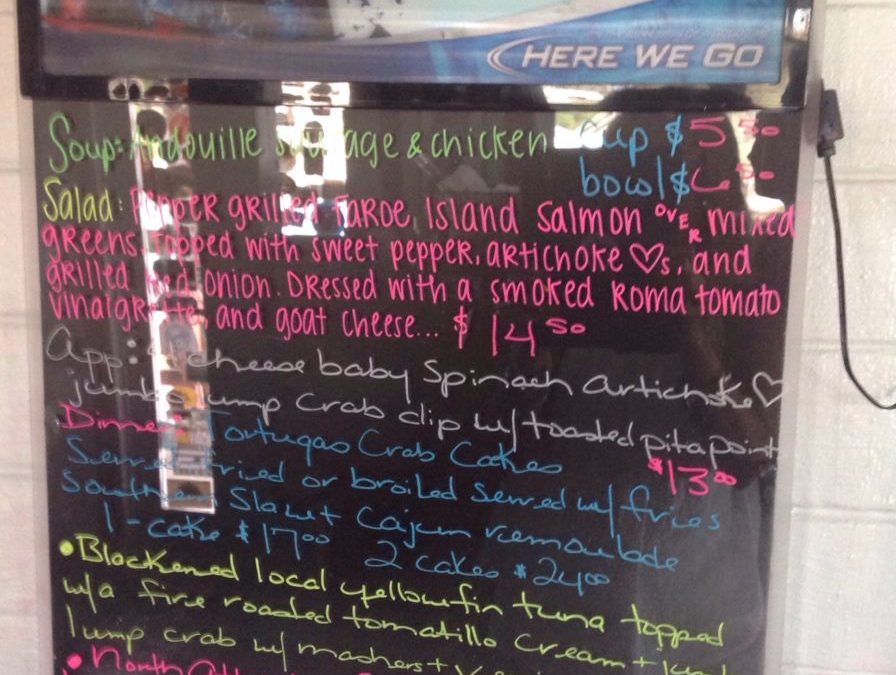 HERE WE GO
Soup: Andouille sausage & chicken Cup $5.50
bowl $6.50
Salad: Pepper grilled Faroe Island Salmon over mixed
greens. Topped with sweet pepper, artichoke ♡s, and
grilled red onion. Dressed with a smoked Roma tomato
vinaigrette, and goat cheese... $14.50
App: cheese baby Spinach artichoke ♡
jumbo lump Crab dip w/ toasted pita points
$13.00
Dinner Tortugas Crab Cakes
Served fried or broiled served w/ fries
Southern Slaw + Cajun remoulade
1 - cake $17.00 2 cakes $24.00
• Blackened local yellowfin tuna topped
w/ a fire roasted tomatillo cream +
lump crab w/ mashers +
• North